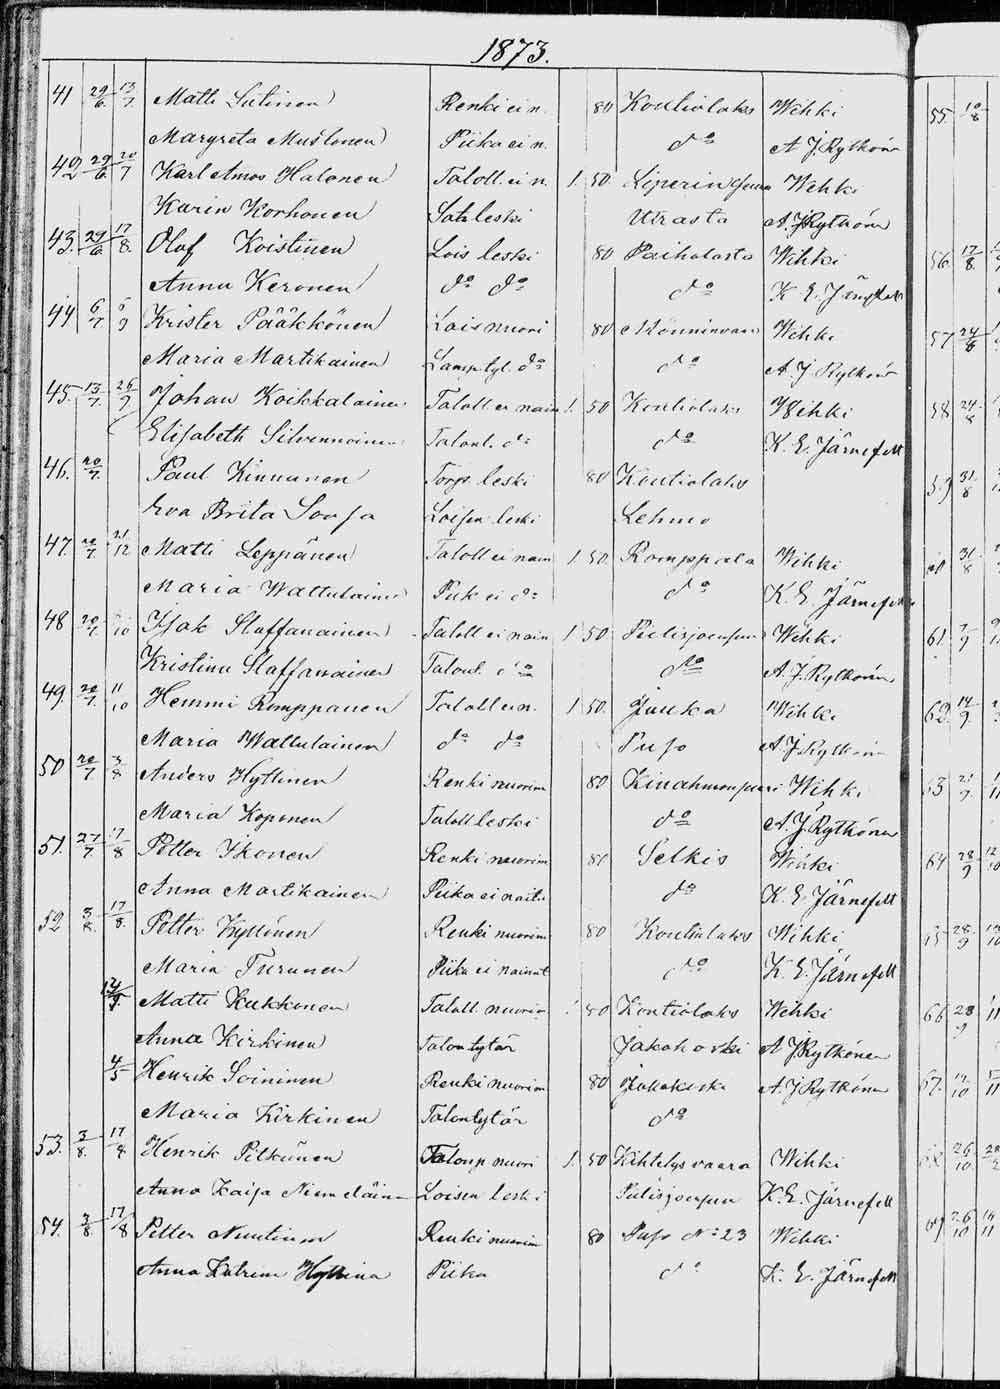 1873.
41 29/6 13/7 Matti Sutinen Renki ei n. 80 Kontiolaks Wihki
Margreta Mustonen Piika ei n. do A J. Rytkönen
42 29/6 20/7 Karl Amos Halonen Taloll. ei n. 1. 50 Liperin Wihki
Karin Korhonen leski Utrasta A. J Rytkönen
43. 29/6 17/8. Olof Koistinen Lois leski 80 Paiholasta Wihki
Anna Keronen do do do K E. Järnefelt
44 6/7 5/9 Krister Pääkkönen Lois nuori 80 Wihki
Maria Martikainen do do A. J Rytkönen
45. 13/7. 26/9 Johan Koikkalainen Taloll. ei nain 1. 50 Kontiolaks Wihki
Elisabeth Silvennoinen Talont. do do K. E. Järnefelt
46. 20/7. Paul Kinnunen Torp. leski 80 Kontiolaks
Eva Brita Loisen leski Lehmo
47. 20/7 21/12 Matti Leppänen Taloll ei nain 1. 50. Romppala Wihki
Maria Wattulainen Piik ei do do K. E. Järnefelt
48 20/7. /10 Isak Staffanainen Taloll ei nain 1 50 Wihki
Kristina Staffanainen Talont. do do A. J. Rytkönen
49. 20/7. 11/10 Hemmi Romppanen Taloll ei n. 1 50. Juuka Wihki
Maria Wattulainen do do Puso A. J Rytkönen
50 20/7 3/8 Anders Hyttinen Renki nuorim 80 Wihki
Maria Koponen Taloll leski do A. J. Rytkönen
51. 27/7. 17/8 Petter Ikonen Renki nuorim 80 Selkis Wihki
Anna Martikainen Piika ei naitu do K. E Järnefelt
52 3/8. 17/8. Petter Kyllönen Renki nuorim 80 Kontiolaks Wihki
Maria Turunen Piika ei nainut do K. E. Järnefelt
Matti Kukkonen Taloll. nuorim 80 Kontiolaks Wihki
Anna Kirkinen Talontytär Jakokoski A J Rytkönen
4/5 Henrik Soininen Renki nuorim 80 Jakokoski A. J Rytkönen
Maria Kirkinen Talontytär do
53. 3/8. 17/8 Henrik Pitkänen Talonp nuori 1. 50 Kihtelysvaara Wihki
Anna Kaisa Niemeläinen Loisen leski K. E. Järnefelt
54. 3/8. 17/8 Petter Nuutinen Renki nuorim 80 Puso No 23 Wihki
Anna Katrina Piika do K. E. Järnefelt
55 10/8
56. 17/8.
57 24/8
58 24/8
59 31/8
60 31/8
61. 7/9
62. 14/9.
63 21/9.
64 28/9
65 28/9
66 28/9
67.
68. 26/10.
69 26/10